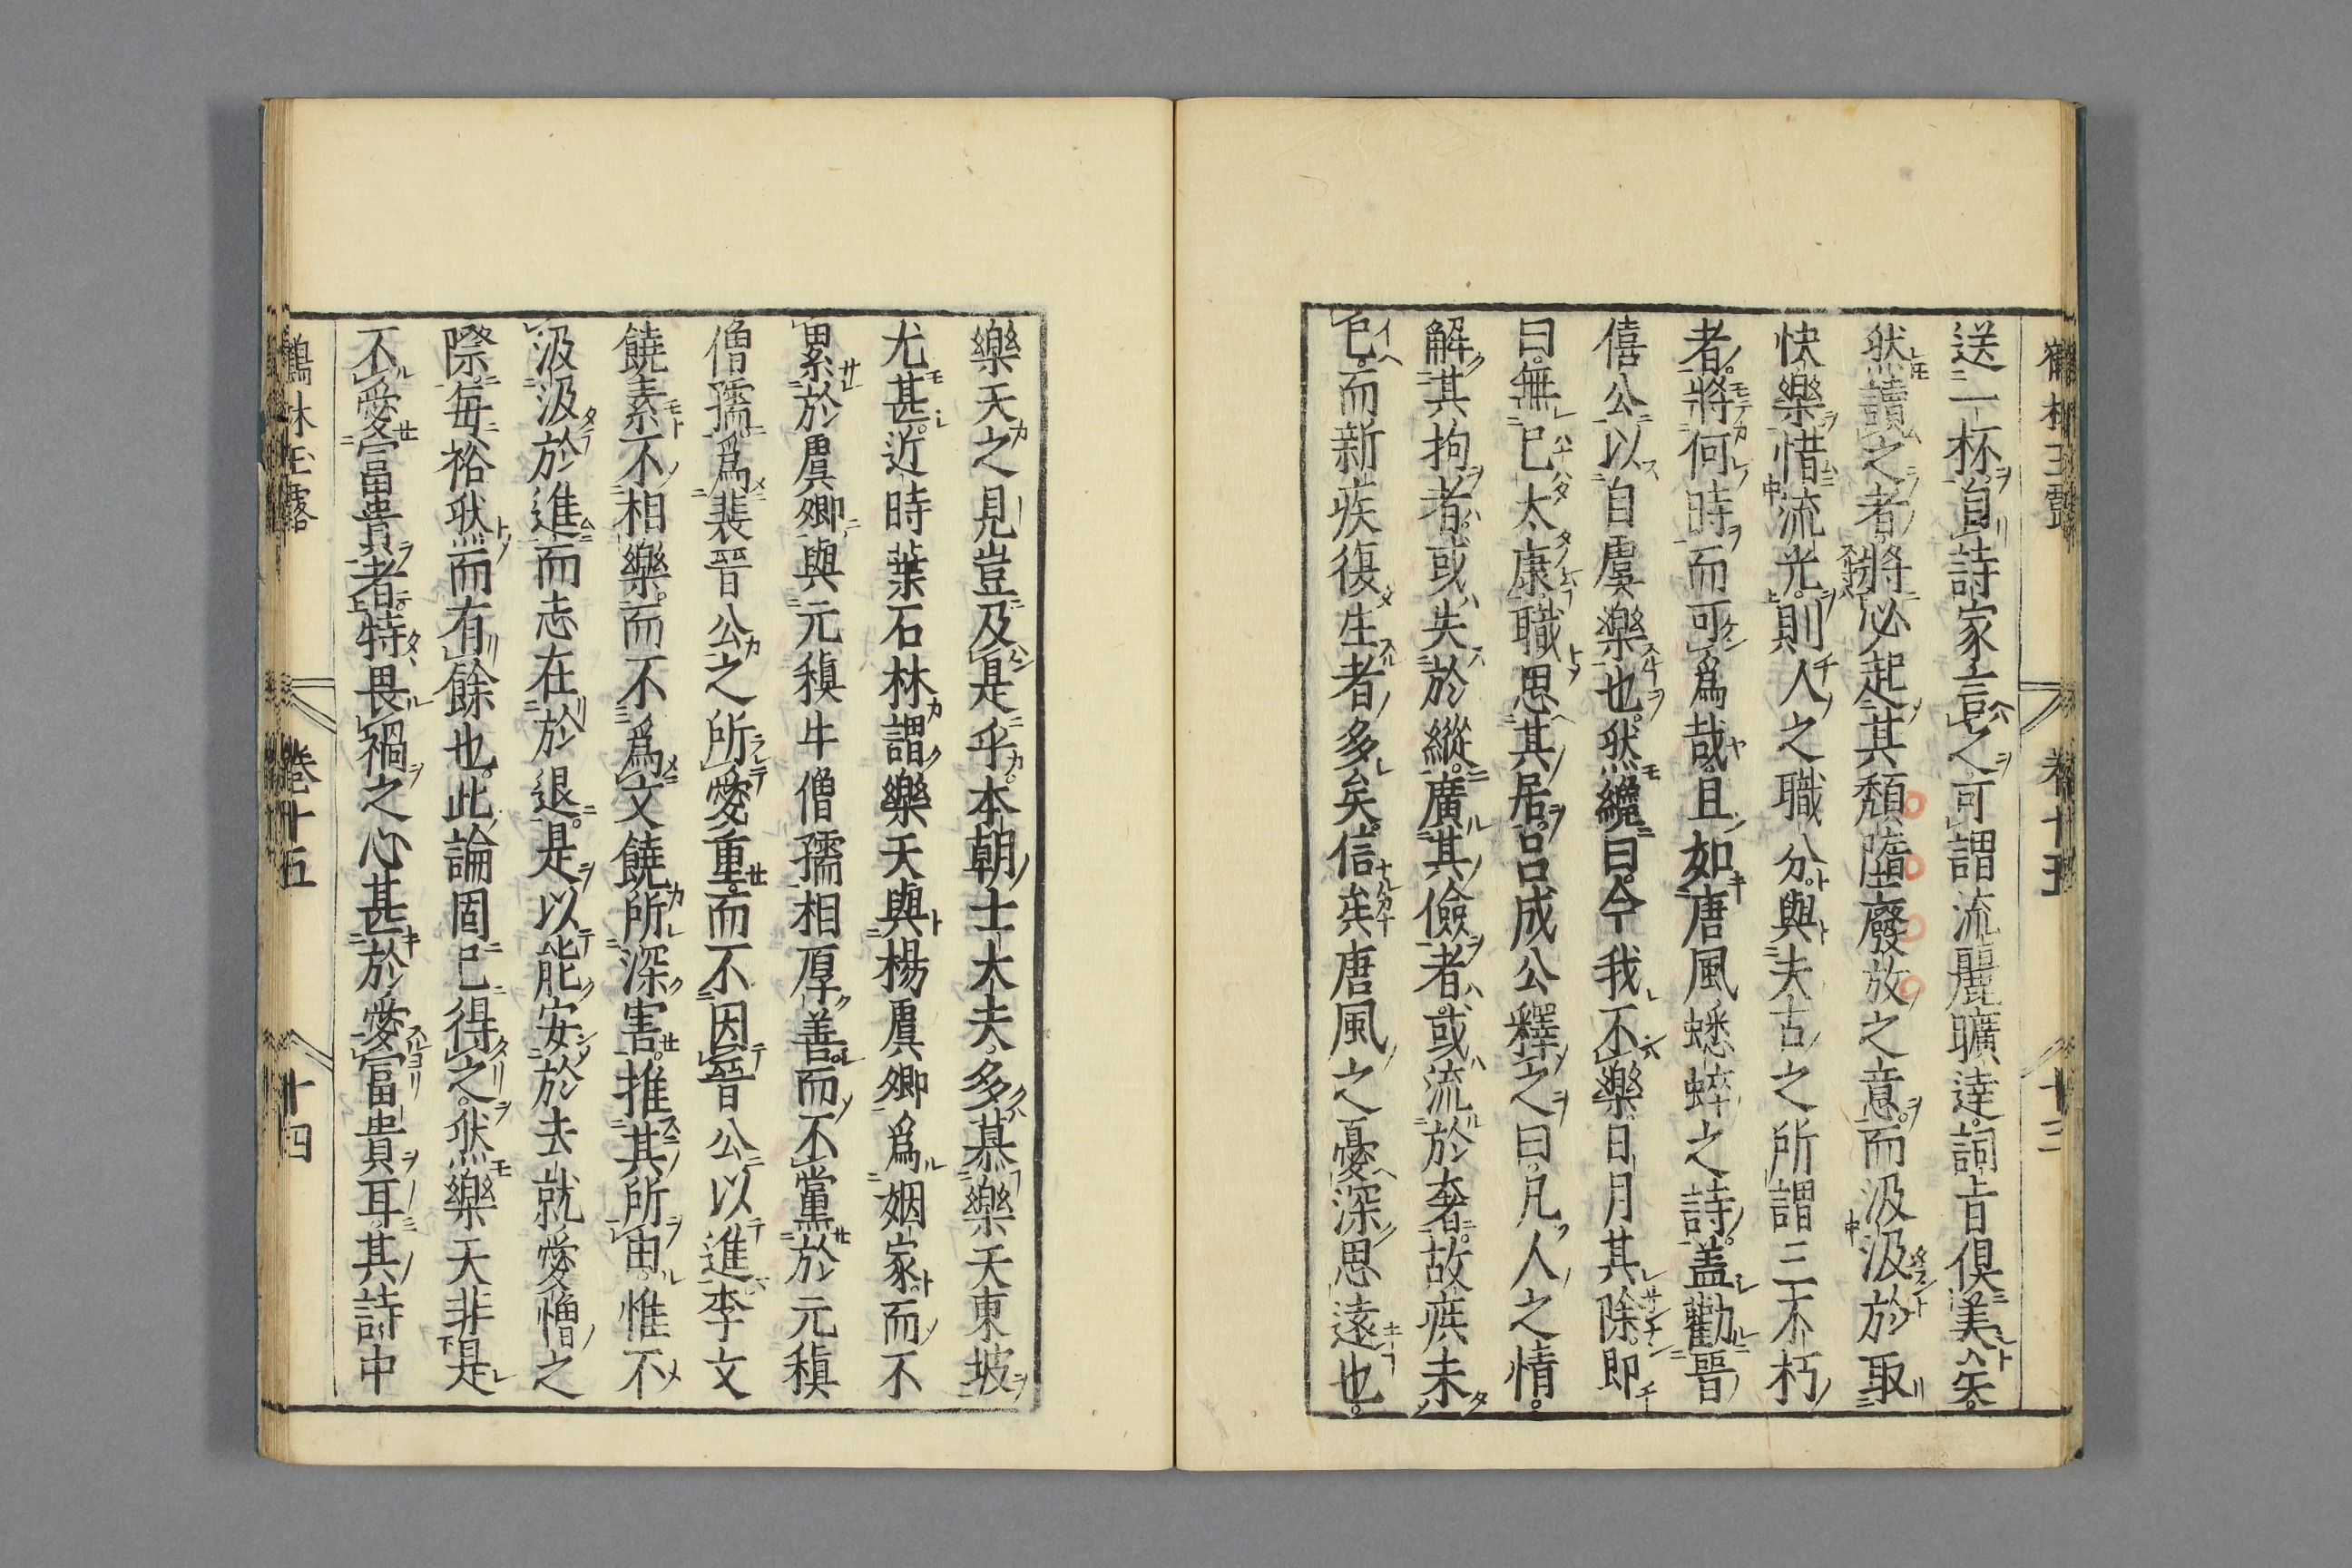 鶴林玉露 卷十五 十三
送一杯自詩家言之可謂流麗曠達詞旨俱美矣
然讀之者將必起其頹墮廢放之意而汲汲於取
快樂惜流光則人之職分與夫古之所謂三不朽
者將何時而可爲哉且如唐風蟋蟀之詩盖勸晉
僖公以自虞樂也然纔曰今我不樂日月其除即
曰無已太康職思其居呂成公釋之曰凡人之情
解其拘者或失於縱廣其儉者或流於奢故疾未
已而新疾復生者多矣信矣唐風之憂深思遠也
樂天之見豈及是乎本朝士大夫多慕樂天東坡
尤甚近時葉石林謂樂天與楊虞卿爲姻家而不
累於虞卿與元稹牛僧孺相厚善而不黨於元稹
僧孺爲裴晉公之所愛重而不因晉公以進李文
饒素不相樂而不爲文饒所深害推其所由惟不
汲汲於進而志在於退是以能安於去就愛憎之
際每裕然而有餘也此論固已得之然樂天非是
不愛富貴者特畏禍之心甚於愛富貴耳其詩中
鶴林玉露 卷十五 十四